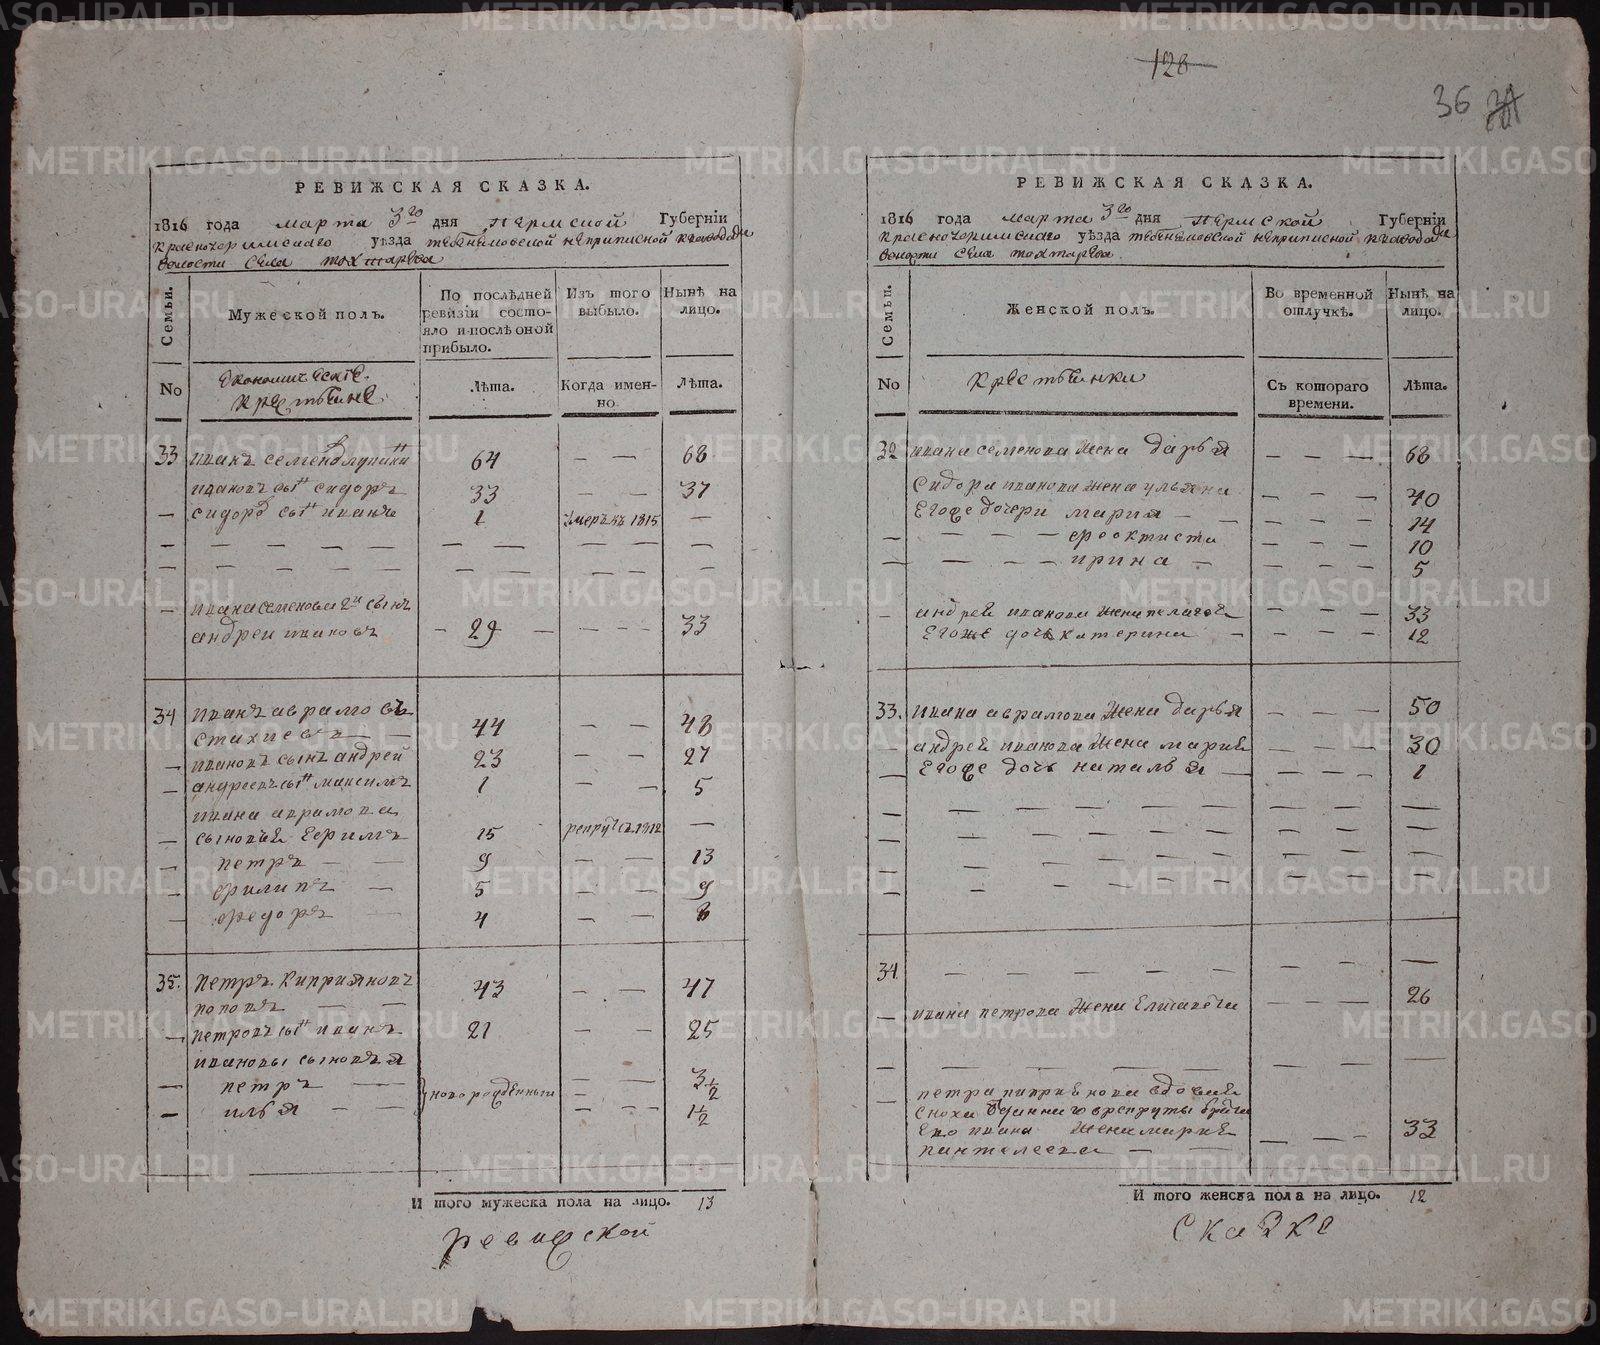 128
36
РЕВИЖСКАЯ СКАЗКА.
1816 года марта 3го дня пермской Губерніи
красноуфимскаго уѣзда неприписной к заводам
волости села тохтарева
Семьи.
Мужеской полъ.
По послѣдней ревизіи состояло и послѣ оной прибыло.
Изъ того выбыло.
Нынѣ на лицо.
No
економическіе крестьяне
Лѣта.
Когда именно.
Лѣта.
33 иванъ семенов 64 — — 68
ивановъ сынъ сидоръ 33 — — 37
— сидоровъ сынъ иванъ 1 умеръ въ 1815 —
— ивана семенова 2й сынъ
андреи ивановъ — 29 — — — — 33
34 иванъ аврамовъ
стахиевъ — — 44 — — 48
— ивановъ сынъ андрей 23 — — 27
— андреевъ сынъ максимъ 1 — — 5
ивана аврамова
— сыновья ефимъ 15 рекрут въ 1812 —
— петръ — — 9 — — 13
— филипъ — 5 — — 9
— федоръ — 4 — — 8
35. петръ киприяновъ
поповъ — — 43 — — 47
— петровъ сынъ иванъ 21 — — 25
ивановы сыновья
— петръ — новорожденныи — — 3½
— илья — — — — 1½
И того мужеска пола на лицо. 13
ревижской
РЕВИЖСКАЯ СКАЗКА.
1816 года марта 3го дня пермской Губерніи
красноуфимскаго уѣзда неприписной к заводам
волости села тохтарева
Семьи.
Женской полъ.
Во временной отлучкѣ.
Нынѣ на лицо.
No
крестьянки
Съ котораго времени.
Лѣта.
32 ивана семенова жена дарья — — — 68
сидора иванова жена ульяна — — — 40
егоже дочери мария — — — — — 14
— — — — феоктиста — — — 10
— — — — ирина — — — — 5
— андрея иванова жена пелагея — — — 33
егоже дочь катерина — — — — 12
33. ивана аврамова жена дарья — — — 50
— андрея иванова жена мария — — — 30
— егоже дочь наталья — — — — 1
34 — — — — — — — — —
— ивана петрова жена елисавета — — — 26
— петра киприянова
сноха отданнаго в рекруты брата
ево ивана жена мария
пантелеева — — — — — 33
И того женска пола на лицо. 12
сказке